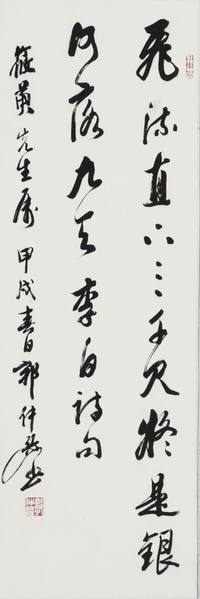 飛流直下三千尺疑是銀
河落九天李白詩句
筱黄先生属甲戌春日郭仲選書